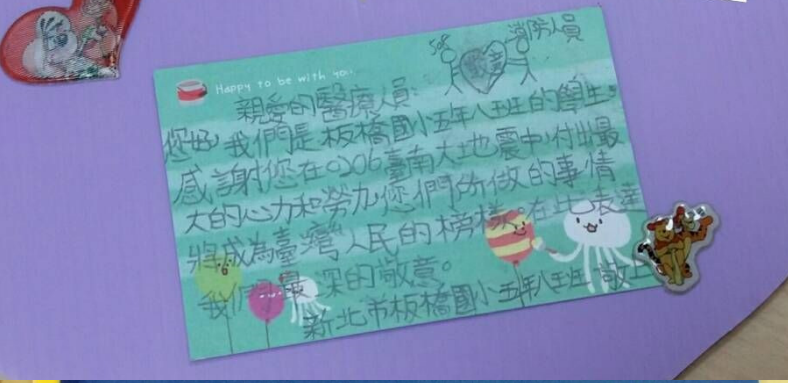 Happy to be with you.
sos 消防人員
致敬
親愛的醫療人員:
您好,我們是板橋國小五年八班的學生,
感謝您在0206臺南大地震中,付出最
大的心力和勞力,您們所做的事情
將成為臺灣人民的榜樣。在此表達
我們最深的敬意。
新北市板橋國小五年八班 敬上